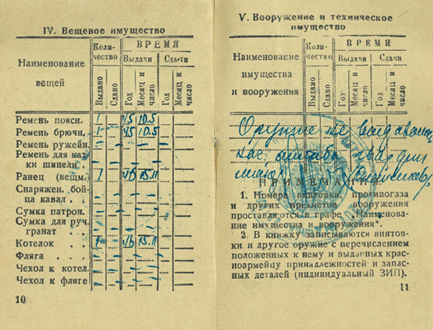 IV. Вещевое имущество
Наименование вещей
Количество
ВРЕМЯ
Выдачи
Сдачи
Выдано
Сдано
Год
Месяц и число
Год
Месяц и число
Ремень поясн. 1 45 10.5
Ремень брючн. 1 45 10.5
Ремень ружейн.
Ремень для скат-
ки шинели
Ранец (вещм. 1 46 15.11
Снаряжен. бой-
ца кавал.
Сумка патрон.
Сумка для руч.
гранат
Котелок 1 46 15.11
Фляга
Чехол к котел.
Чехол к фляге
10
V. Вооружение и техническое
имущество
Наименование
имущества
и вооружения
Количество
ВРЕМЯ
Выдачи
Сдачи
Выдано
Сдано
Год
Месяц и число
Год
Месяц и число
Оружие не
ПРИМЕЧА
1. Номера винтовки, противогаза
и других предметов вооружения
проставляются в графе „Наименова-
ние имущества и вооружения“.
2. В книжку записываются винтов-
ки и другое оружие с перечислением
положенных к нему и выданных крас-
ноармейцу принадлежностей и запас-
ных деталей (индивидуальный ЗИП).
11